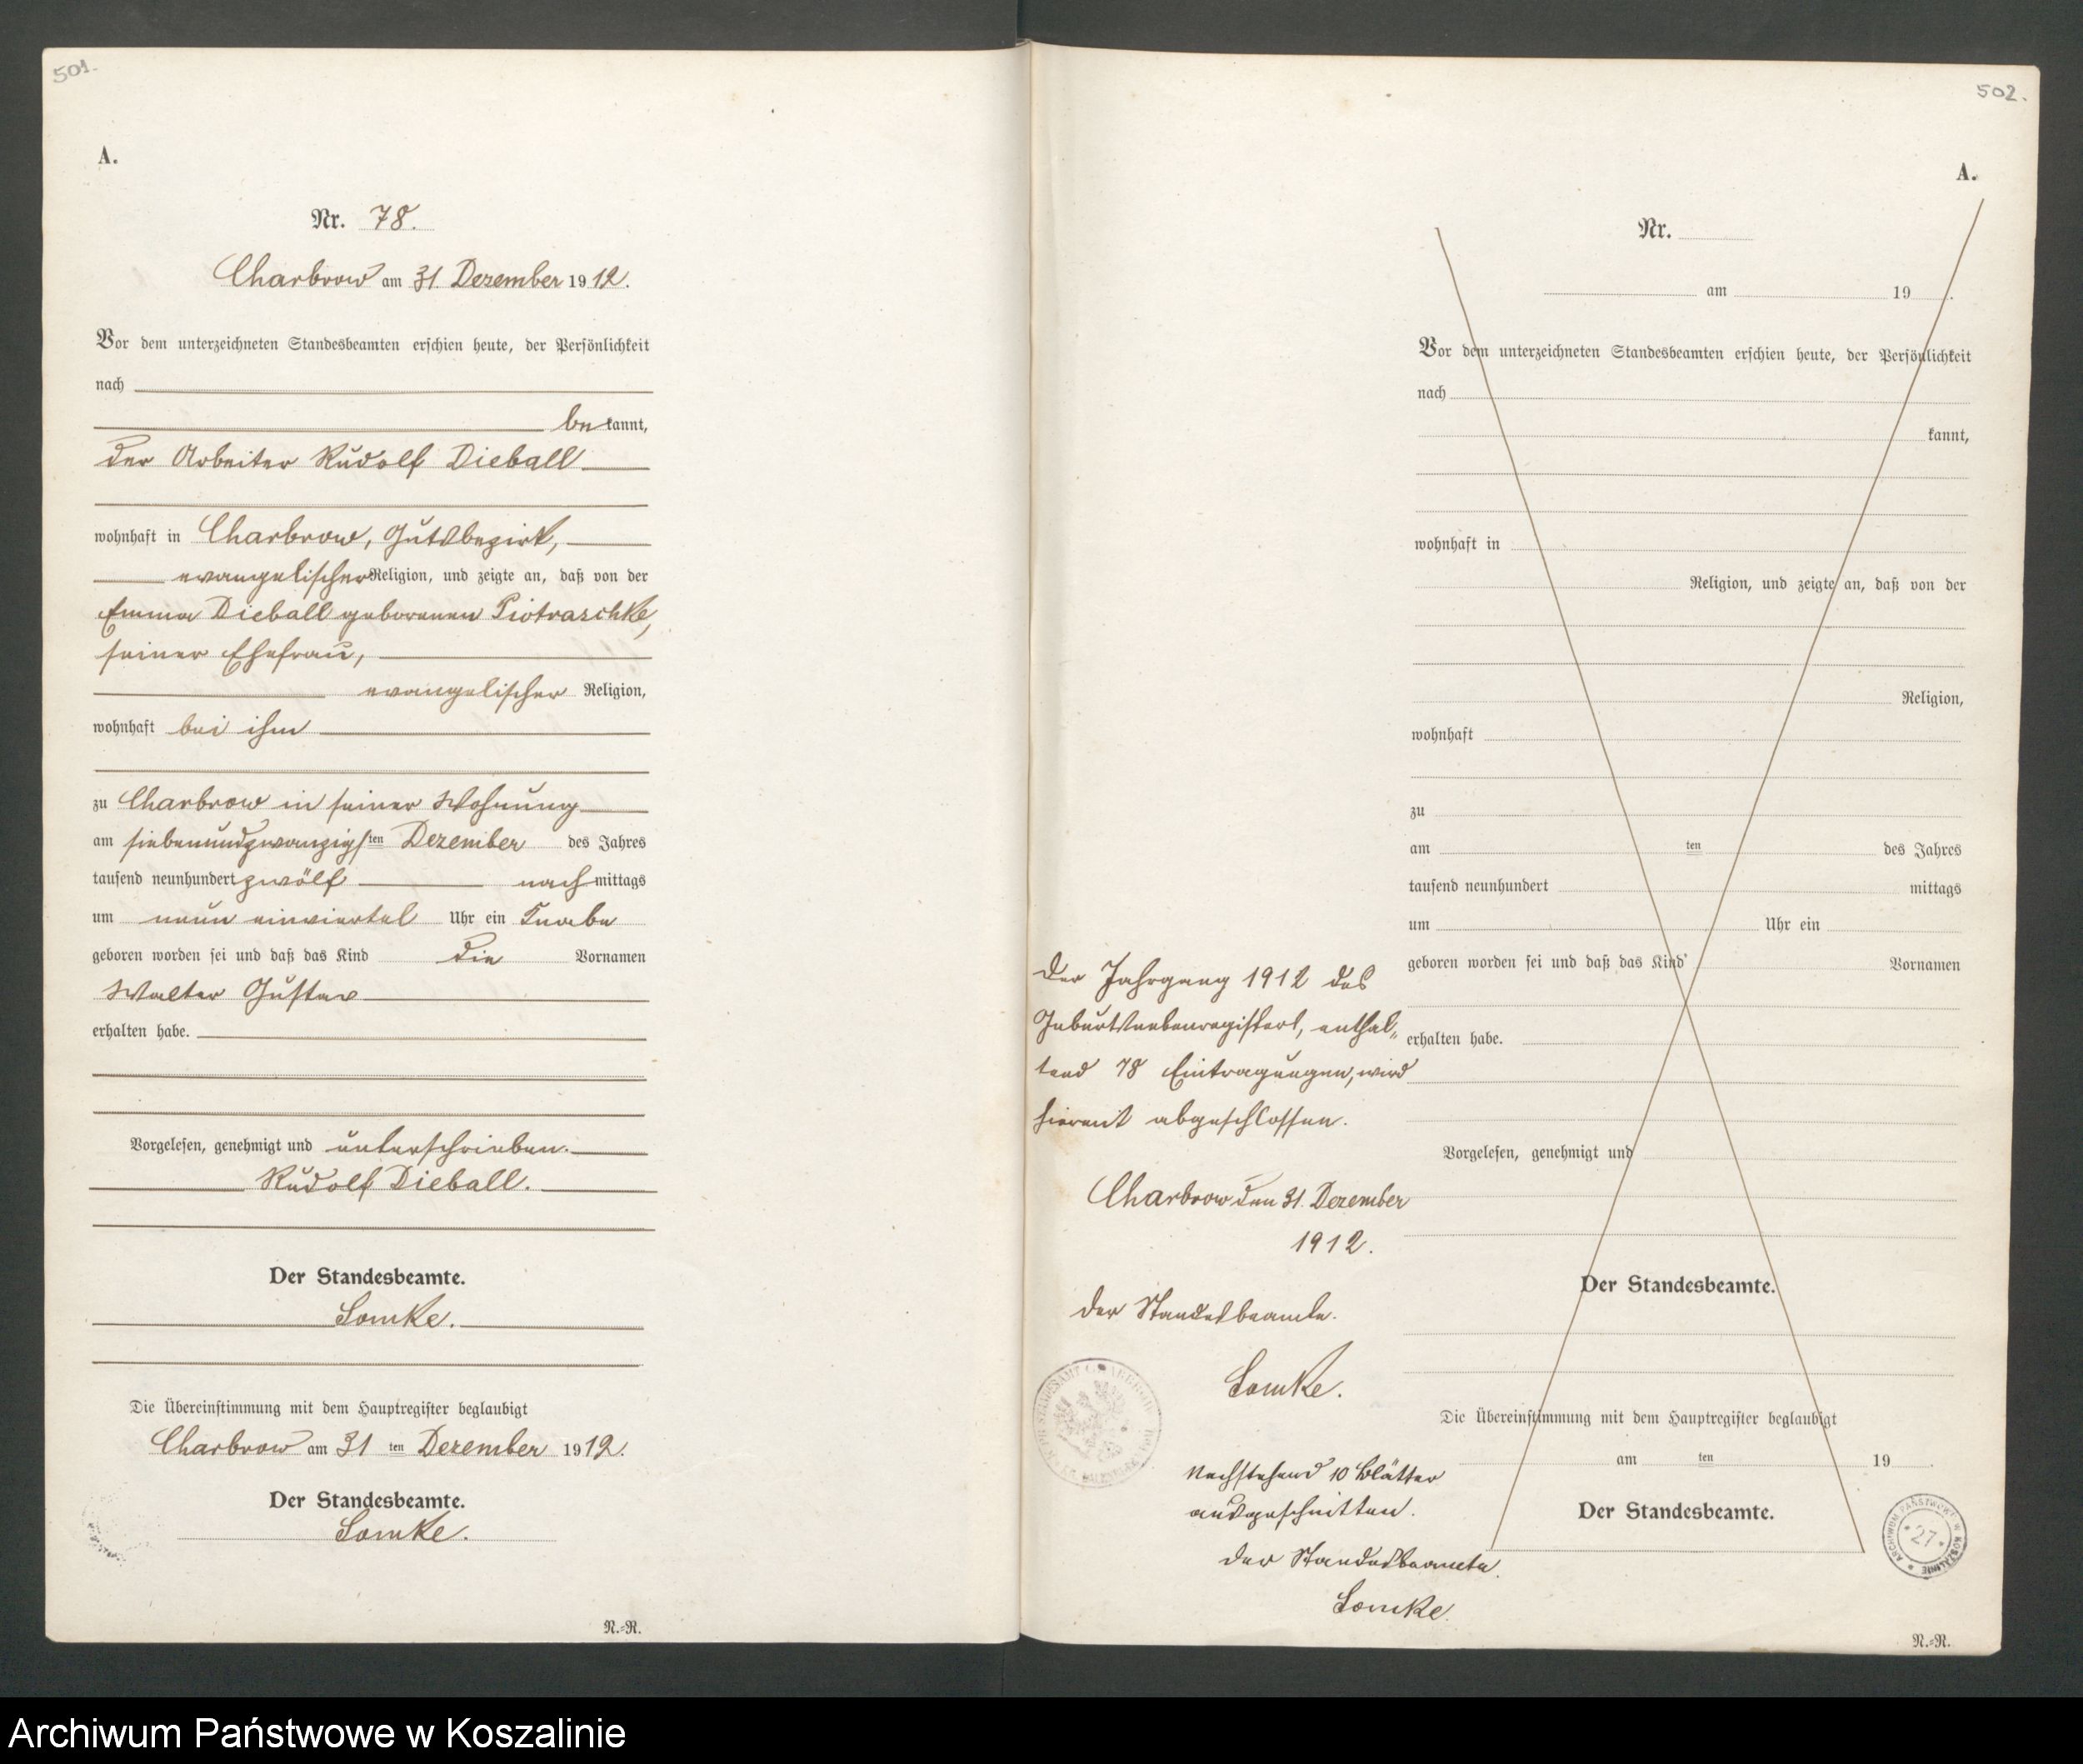 501.
A.
Nr. 78.
Charbrow am 31. Dezember 1912.
Vor dem unterzeichneten Standesbeamten erschien heute, der Persönlichkeit
nach
be kannt,
der Arbeiter Rudolf Dieball
wohnhaft in Charbrow, Gutsbezirk,
evangelischer Religion, und zeigte an, daß von der
Emma Dieball geborenen Piotraschke,
seiner Ehefrau,
evangelischer Religion,
wohnhaft bei ihm
zu Charbrow in seiner Wohnung
am siebenundzwanzigsten Dezember des Jahres
tausend neunhundert zwölf nachmittags
um neun einviertel Uhr ein Knabe
geboren worden sei und daß das Kind die Vornamen
Walter Gustav
erhalten habe.
Vorgelesen, genehmigt und unterschrieben.
Rudolf Dieball.
Der Standesbeamte.
Lomke.
Die Übereinstimmung mit dem Hauptregister beglaubigt
Charbrow am 31 ten Dezember 1912.
Der Standesbeamte.
Lomke.
N.=R.
502.
A.
Nr.
am 19 .
Vor dem unterzeichneten Standesbeamten erschien heute, der Persönlichkeit
nach
kannt,
wohnhaft in
Religion, und zeigte an, daß von der
Religion,
wohnhaft
zu
am ten des Jahres
tausend neunhundert mittags
um Uhr ein
geboren worden sei und daß das Kind Vornamen
erhalten habe.
Vorgelesen, genehmigt und
Der Standesbeamte.
Die Übereinstimmung mit dem Hauptregister beglaubigt
am ten 19 .
Der Standesbeamte.
N.=R.
Der Jahrgang 1912 des
Geburtsnebenregisters, enthal„
tend 78 Eintragungen, wird
hiermit abgeschlossen.
Charbrow den 31. Dezember
1912.
Der Standesbeamte.
Lomke.
Nachstehend 10 Blätter
ausgeschnitten.
Der Standesbeamte.
Lomke.
ARCHIWUM PAŃSTWOWE W KOSZALINIE
* 27 *
Archiwum Państwowe w Koszalinie